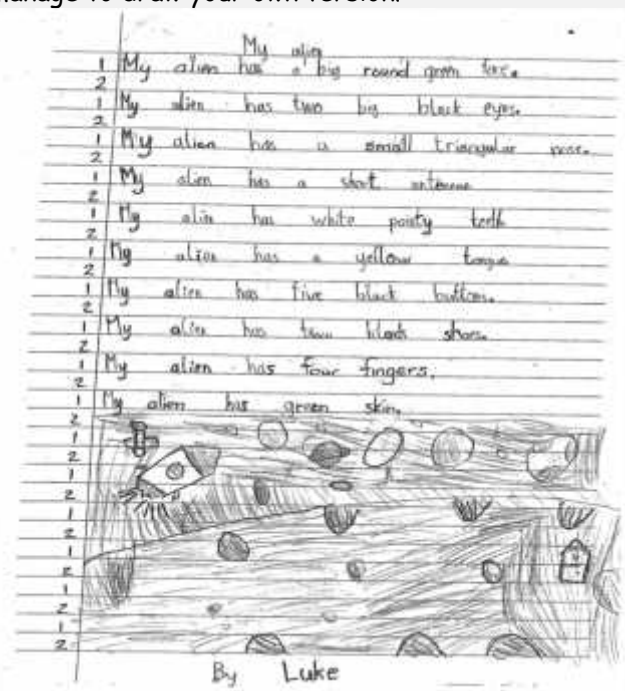 manage to draw your own version.
My alien
1 My alien has a big round green face.
2
1 My alien has two big black eyes.
2
1 My alien has a small triangular nose.
2
1 My alien has a short antenna
2
1 My alin has white pointy teeth
2
1 My alien has a yellow tongue
2
1 My alien has five black buttons.
2
1 My alien has two black shoes.
2
1 My alien has four fingers.
2
1 My alien has green skin.
2
1
2
1
2
1
2
1
2
1
2
1
2
By Luke